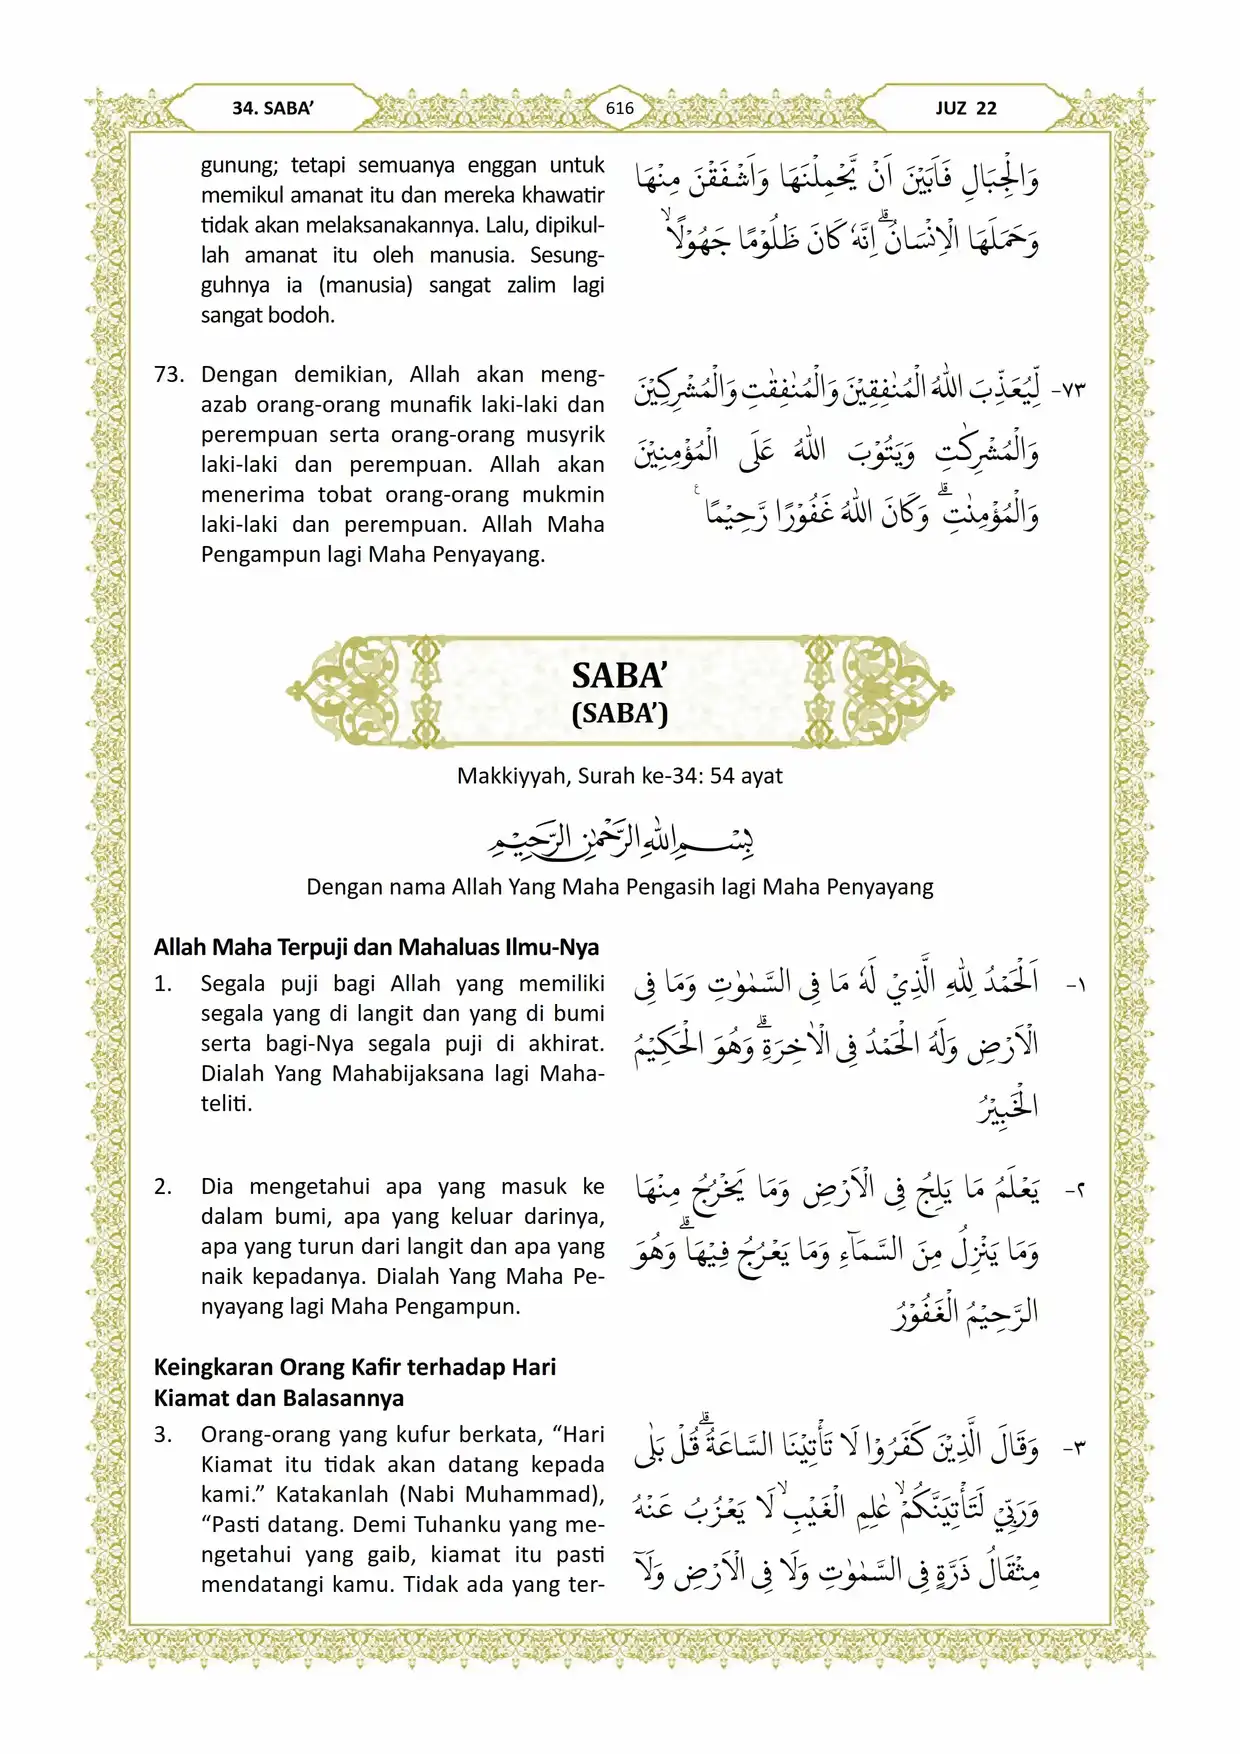 34. SABA’
616
JUZ 22
gunung; tetapi semuanya enggan untuk
memikul amanat itu dan mereka khawatir
tidak akan melaksanakannya. Lalu, dipikul-
lah amanat itu oleh manusia. Sesung-
guhnya ia (manusia) sangat zalim lagi
sangat bodoh.
وَالْجِبَالِ فَاَبَيْنَ اَنْ يَّحْمِلْنَهَا وَاَشْفَقْنَ مِنْهَا
وَحَمَلَهَا الْاِنْسَانُۗ اِنَّهٗ كَانَ ظَلُوْمًا جَهُوْلًاۙ
73. Dengan demikian, Allah akan meng-
azab orang-orang munafik laki-laki dan
perempuan serta orang-orang musyrik
laki-laki dan perempuan. Allah akan
menerima tobat orang-orang mukmin
laki-laki dan perempuan. Allah Maha
Pengampun lagi Maha Penyayang.
٧٣- لِّيُعَذِّبَ اللّٰهُ الْمُنٰفِقِيْنَ وَالْمُنٰفِقٰتِ وَالْمُشْرِكِيْنَ
وَالْمُشْرِكٰتِ وَيَتُوْبَ اللّٰهُ عَلَى الْمُؤْمِنِيْنَ
وَالْمُؤْمِنٰتِۗ وَكَانَ اللّٰهُ غَفُوْرًا رَّحِيْمًا ࣖ
SABA’
(SABA’)
Makkiyyah, Surah ke-34: 54 ayat
بِسْمِ اللّٰهِ الرَّحْمٰنِ الرَّحِيْمِ
Dengan nama Allah Yang Maha Pengasih lagi Maha Penyayang
Allah Maha Terpuji dan Mahaluas Ilmu-Nya
1. Segala puji bagi Allah yang memiliki
segala yang di langit dan yang di bumi
serta bagi-Nya segala puji di akhirat.
Dialah Yang Mahabijaksana lagi Maha-
teliti.
١- اَلْحَمْدُ لِلّٰهِ الَّذِيْ لَهٗ مَا فِى السَّمٰوٰتِ وَمَا فِى
الْاَرْضِ وَلَهُ الْحَمْدُ فِى الْاٰخِرَةِۗ وَهُوَ الْحَكِيْمُ
الْخَبِيْرُ
2. Dia mengetahui apa yang masuk ke
dalam bumi, apa yang keluar darinya,
apa yang turun dari langit dan apa yang
naik kepadanya. Dialah Yang Maha Pe-
nyayang lagi Maha Pengampun.
٢- يَعْلَمُ مَا يَلِجُ فِى الْاَرْضِ وَمَا يَخْرُجُ مِنْهَا
وَمَا يَنْزِلُ مِنَ السَّمَاۤءِ وَمَا يَعْرُجُ فِيْهَاۗ وَهُوَ
الرَّحِيْمُ الْغَفُوْرُ
Keingkaran Orang Kafir terhadap Hari
Kiamat dan Balasannya
3. Orang-orang yang kufur berkata, “Hari
Kiamat itu tidak akan datang kepada
kami.” Katakanlah (Nabi Muhammad),
“Pasti datang. Demi Tuhanku yang me-
ngetahui yang gaib, kiamat itu pasti
mendatangi kamu. Tidak ada yang ter-
٣- وَقَالَ الَّذِيْنَ كَفَرُوْا لَا تَأْتِيْنَا السَّاعَةُۗ قُلْ بَلٰى
وَرَبِّيْ لَتَأْتِيَنَّكُمْۙ عٰلِمِ الْغَيْبِۙ لَا يَعْزُبُ عَنْهُ
مِثْقَالُ ذَرَّةٍ فِى السَّمٰوٰتِ وَلَا فِى الْاَرْضِ وَلَآ